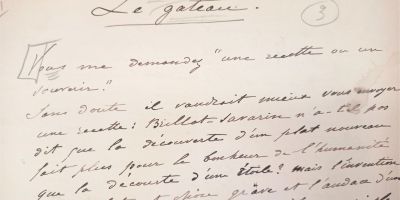 Le gateau.
3
Vous me demandez "une recette ou un
souvenir."
Sans doute il vaudrait mieux vous envoyer
une recette: Brillat-Savarin n'a-t-il pas
dit que la découverte d'un plat nouveau
fait plus pour le bonheur de l'humanité
que la découverte d'une étoile? mais l'invention
grave et l'audace d'un